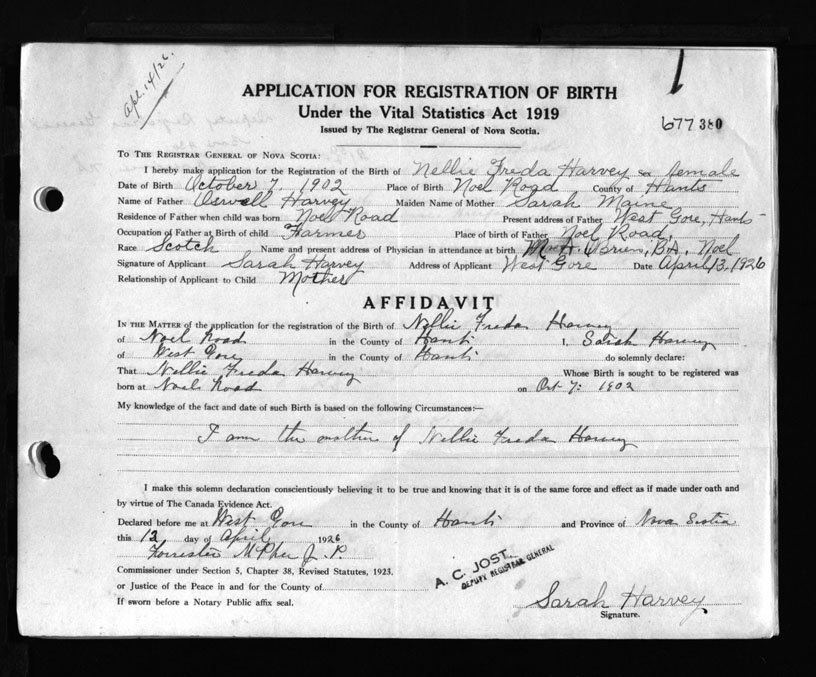 Apl. 14/26.
APPLICATION FOR REGISTRATION OF BIRTH
Under the Vital Statistics Act 1919
Issued by The Registrar General of Nova Scotia.
677380
TO THE REGISTRAR GENERAL OF NOVA SCOTIA:
I hereby make application for the Registration of the Birth of Nellie Freda Harvey a female
Date of Birth October 7, 1902 Place of Birth Noel Road County of Hants
Name of Father Oswell Harvey Maiden Name of Mother Sarah Maine
Residence of Father when child was born Noel Road Present address of Father West Gore, Hants
Occupation of Father at Birth of child Farmer Place of birth of Father Noel Road,
Race Scotch Name and present address of Physician in attendance at birth O'Brien, Noel
Signature of Applicant Sarah Harvey Address of Applicant West Gore Date April 13, 1926
Relationship of Applicant to Child Mother
AFFIDAVIT
IN THE MATTER of the application for the registration of the Birth of Nellie Freda Harvey
of Noel Road in the County of Hants I, Sarah Harvey
of West Gore in the County of Hants do solemnly declare:
That Nellie Freda Harvey Whose Birth is sought to be registered was
born at Noel Road on Oct 7: 1902
My knowledge of the fact and date of such Birth is based on the following Circumstances:—
I am the mother of Nellie Freda Harvey
I make this solemn declaration conscientiously believing it to be true and knowing that it is of the same force and effect as if made under oath and
by virtue of The Canada Evidence Act.
Declared before me at West Gore in the County of Hants and Province of Nova Scotia
this 12 day of April 1926
Forrester McPhee J. P.
Commissioner under Section 5, Chapter 38, Revised Statutes, 1923.
or Justice of the Peace in and for the County of
If sworn before a Notary Public affix seal.
A. C. JOST.
DEPUTY REGISTRAR GENERAL
Sarah Harvey
Signature.